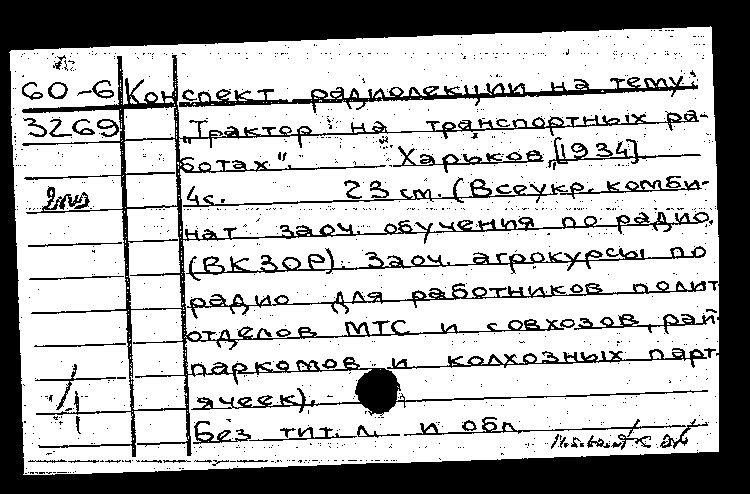 60-6 Конспект радиолекции на тему:
3269 „Трактор на транспортных ра-
ботах". Харьков, [1934].
4с. 23 см. (Всеукр. комби-
нат заоч. обучения по радио.
(ВКЗОР). Заоч. агрокурсы по
радио для работников полит
отделов МТС и совхозов, рай-
паркомов и колхозных парт
ячеек).
Без тит. л. и обл.